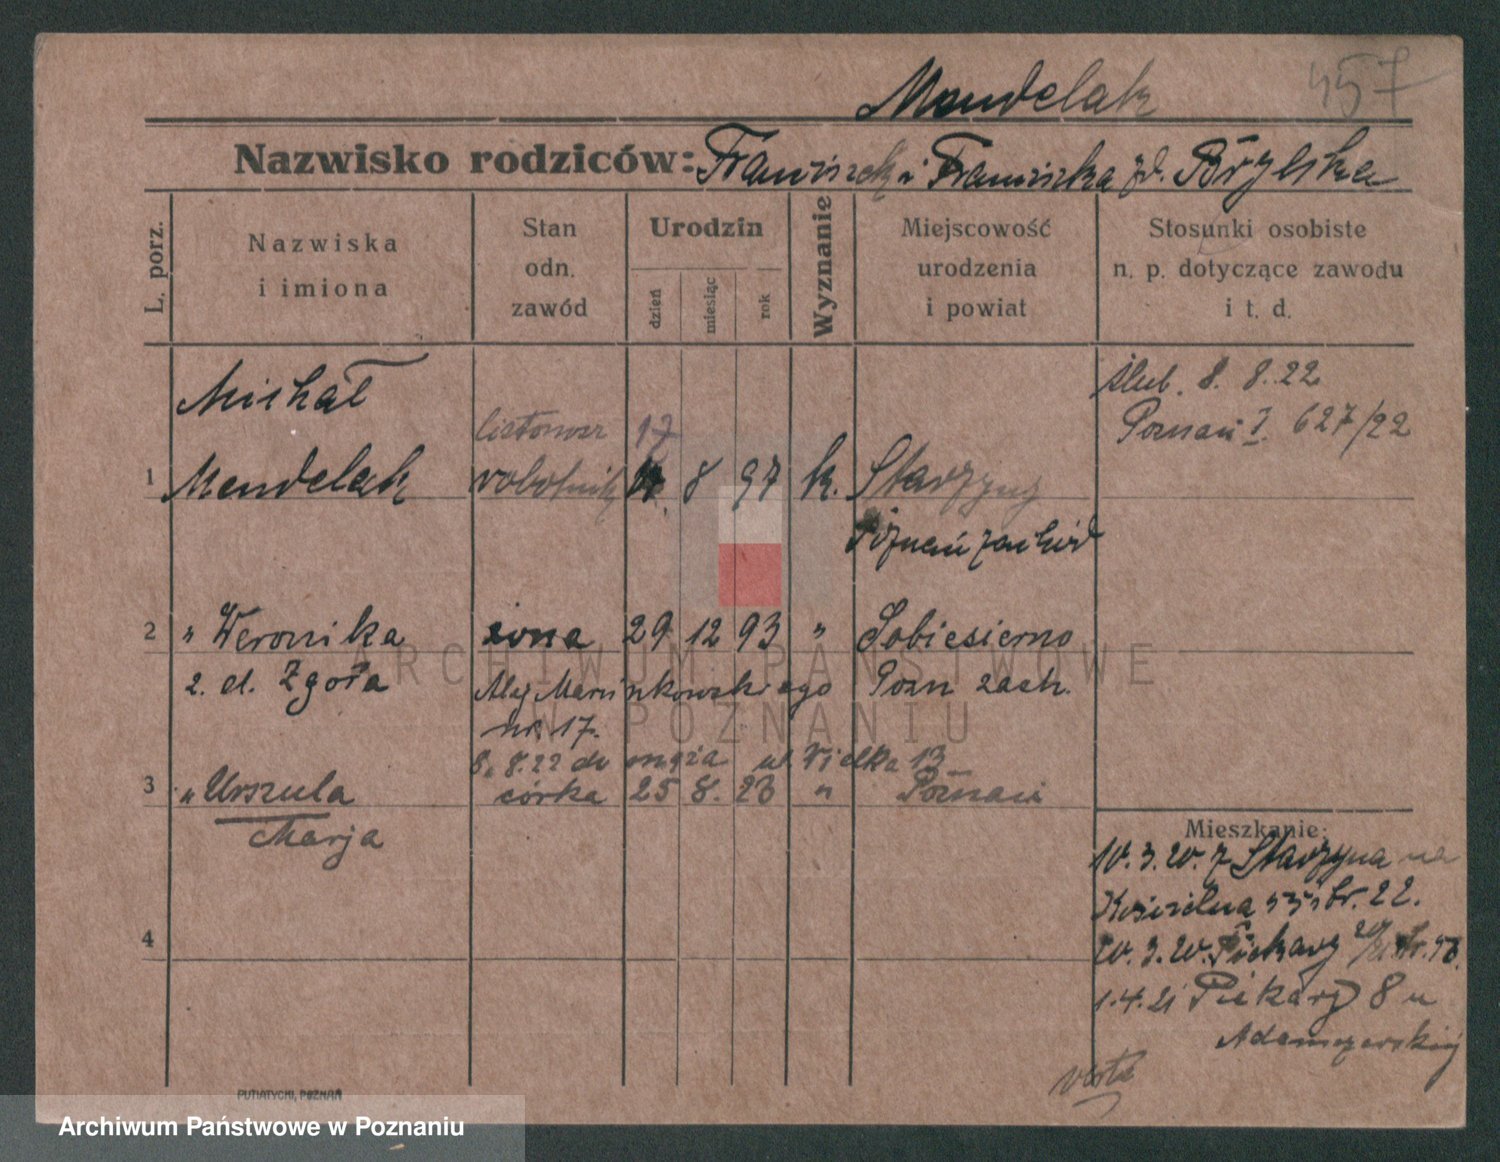 Mendelak 457
Nazwisko rodziców: Franciszek i Franciszka zd. Brzyska
L. porz.
Nazwiska
i imiona
Stan
odn.
zawód
Urodzin
dzień
miesiąc
rok
Wyznanie
Miejscowość
urodzenia
i powiat
Stosunki osobiste
n. p. dotyczące zawodu
i t. d.
Michał
ślub. 8. 8. 22
Poznań I. 627/22
listonosz 17
1 Mendelak robotnik 8 97 k. Starzyny
Poznań zachód
2 " Weronika żona 29 12 93 " Sobiesierno
z. d. Zgoła Alej Marcinkowskiego Pozn zach.
nr. 17.
8. 8. 22 do męża ul Wielka 13
3 " Urszula córka 25 8. 23 " Poznań
Marja
4
Mieszkanie:
10. 3. 20. z Starzyna na
Kościelna 22.
20. 3. 20. Piekary
1. 4. 21 Piekary 8 u
Adamczewskiej
verte
PUTIATYCKI, POZNAŃ
ARCHIWUM PAŃSTWOWE
W POZNANIU
Archiwum Państwowe w Poznaniu